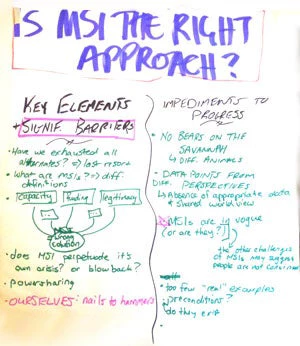 IS MSI THE RIGHT
APPROACH?
KEY ELEMENTS
+ SIGNIF. BARRIERS
• Have we exhausted all
alternates? => last resort
• What are MSIs? => diff.
definitions
Capacity
funding
legitimacy
MSI
wrong
solution
• does MSI perpetuate it's
own crisis? or blowback?
• powersharing
• OURSELVES: nails to hammers
IMPEDIMENTS TO
PROGRESS
• NO BEARS ON THE
SAVANNAH
↳ DIFF. ANIMALS
• DATA POINTS FROM
DIFF. PERSPECTIVES
↳ Absence of appropriate data
& shared world view
MSIs are in vogue
(or are they?)
the other challenges
of MSIs may suggest
people are not convinced
• too few "real" examples
preconditions?
do they exist